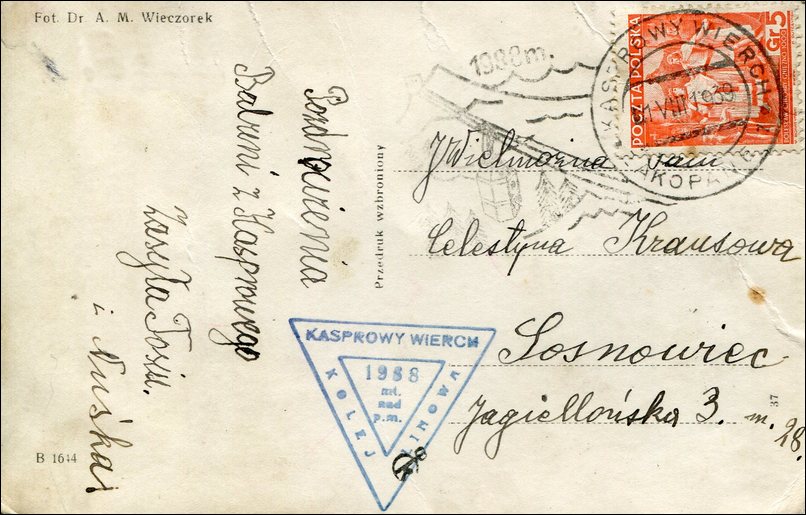 Fot. Dr A. M. Wieczorek
Pozdrowienia
Babuni z Kasprowego
zasyła Tosia.
i Nuśka
B 1644
Przedruk wzbroniony
KASPROWY WIERCH
1988
mt.
nad
p.m.
KOLEJ LINOWA
1988 m.
POCZTA POLSKA
Gr. 5
KASPROWY WIERCH
VIII 1939
ZAKOPANE
JWielmożna Pani
Celestyna Krausowa
Sosnowiec
Jagiellońska 3. m. 28.
37